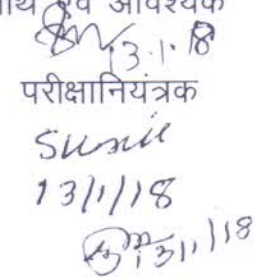 एवं आवश्यक
13.1.18
परीक्षानियंत्रक
Sunil
13/1/18
13/1/18